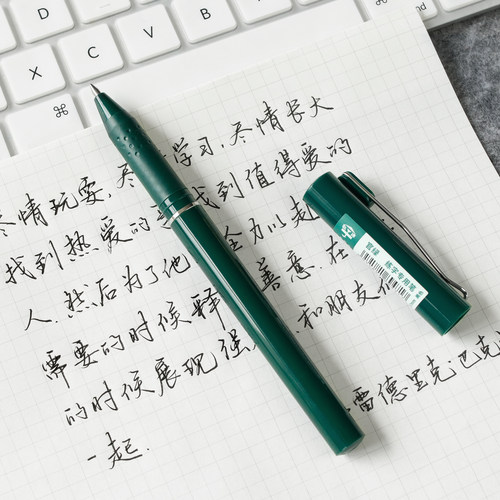 X
C
V
B
⌘
⌘
尽情玩耍,尽 学习,尽情长大
找到热爱的 找到值得爱的
人.然后为了他 全力以赴
需要的时候释 善意.在
的时候展现强 和朋友们
一起.
雷德里克·巴克
宫绿 练字专用笔